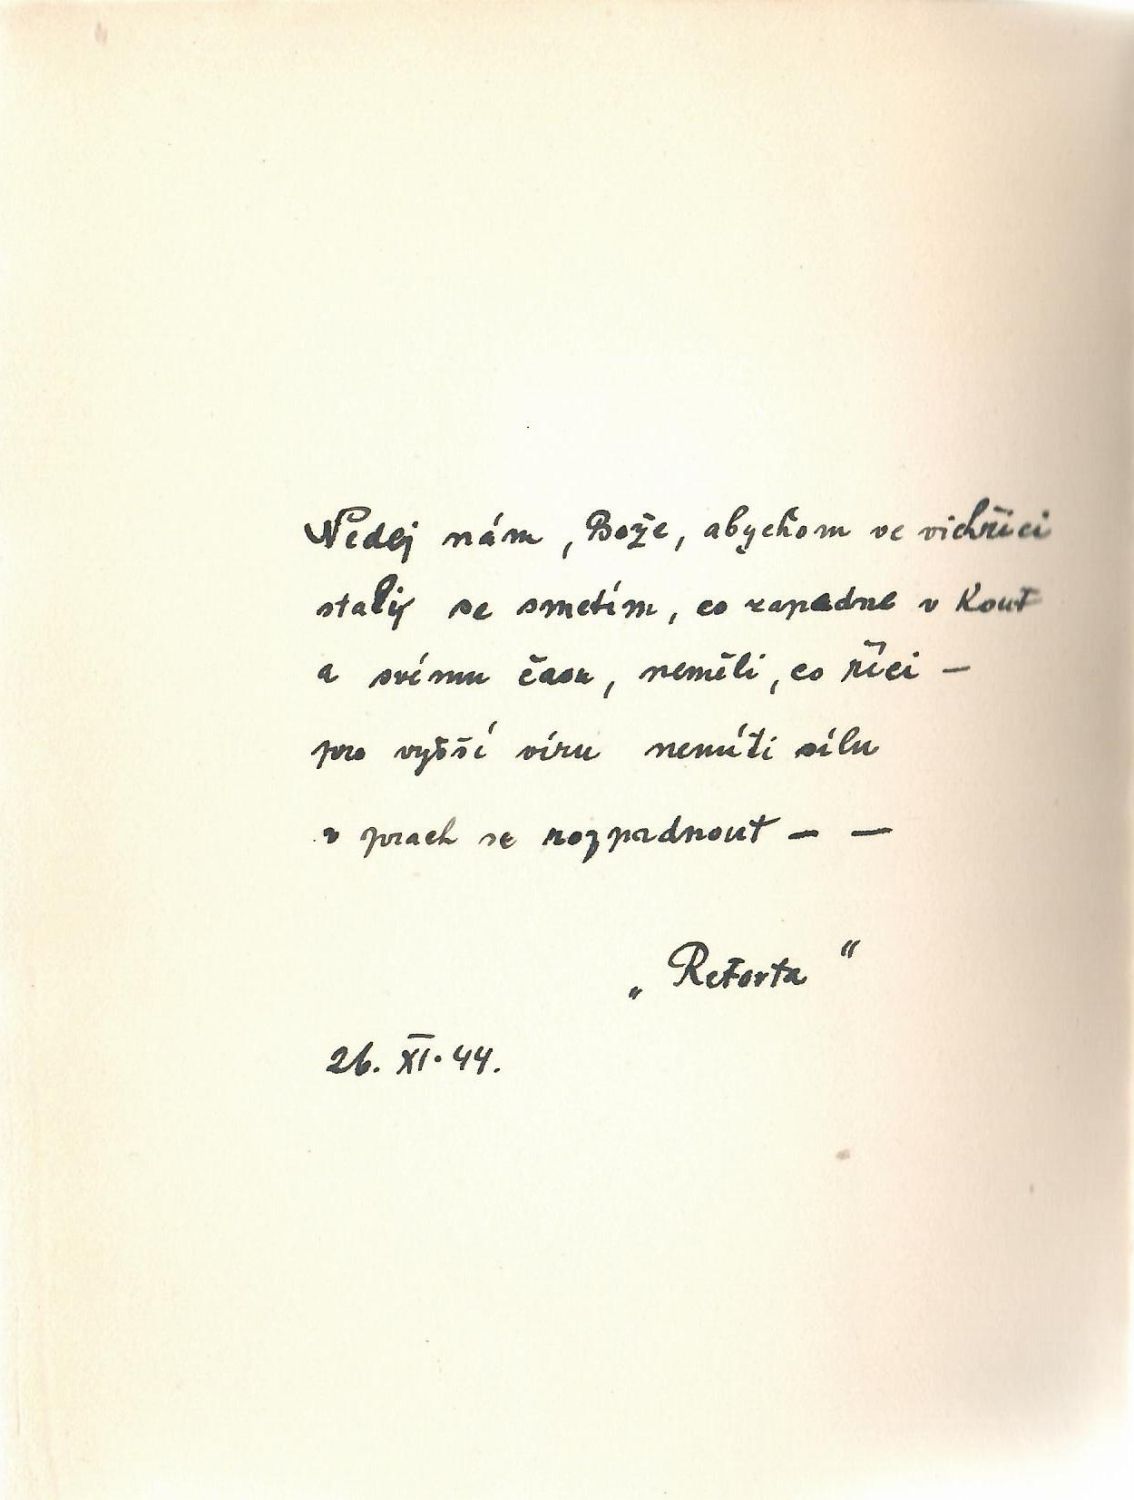 Nedej nám, Bože, abychom ve vichřici
staly se smetím, co zapadne v kout
a svému času, neměli, co říci —
pro vyšší víru nemíti sílu
v prach se rozpadnout — —
„Retorta“
26. XI. 44.